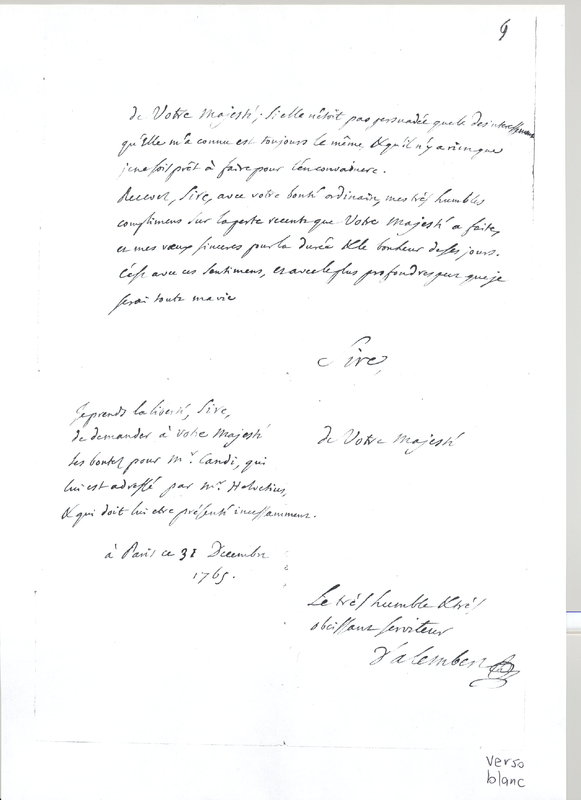 6
de Votre Majesté; si elle n'étoit pas persuadée que le desinteressement
qu'Elle m'a connu est toujours le même & qu'il n'y a rien que
je ne sois prêt à faire pour l'en convaincre.
Recevez, Sire, avec votre bonté ordinaire, mes très humbles
complimens sur la perte recente que Votre Majesté a faite,
et mes vœux sinceres pour la durée & le bonheur de ses jours.
C'est avec ces sentimens, et avec le plus profond respect que je
serai toute ma vie
Sire,
Je prends la liberté, Sire,
de demander à votre Majesté
ses bontez pour Mr. Candi, qui
lui est adressé par Mr. Helvetius,
& qui doit lui etre présenté incessamment.
de Votre Majesté
à Paris ce 31 Decembre
1765.
Le très humble & très
obeissant serviteur
D'alembert
verso
blanc